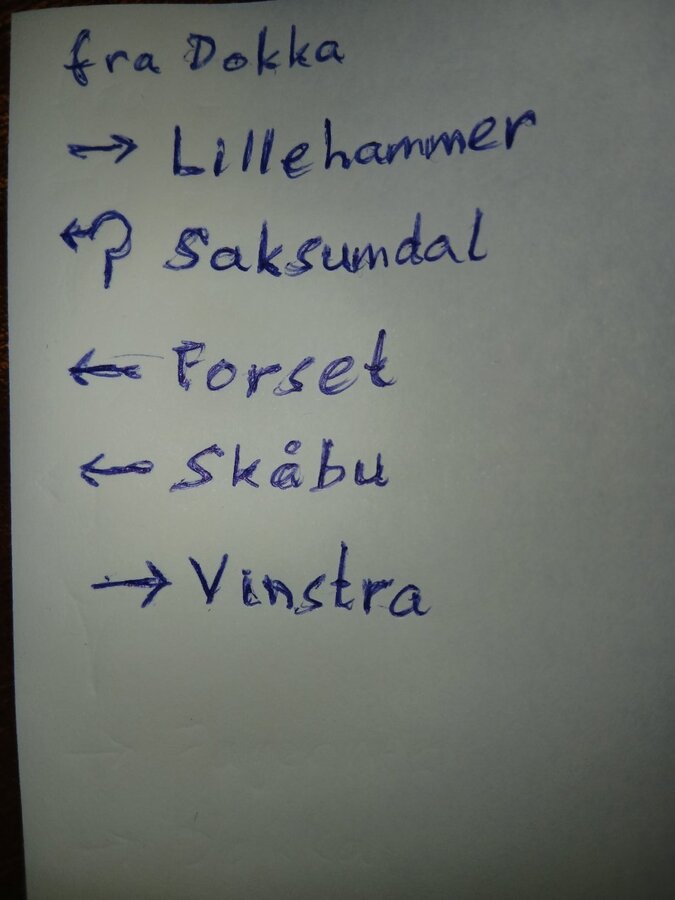 fra Dokka
→ Lillehammer
↰ Saksumdal
← Forset
← Skåbu
→ Vinstra